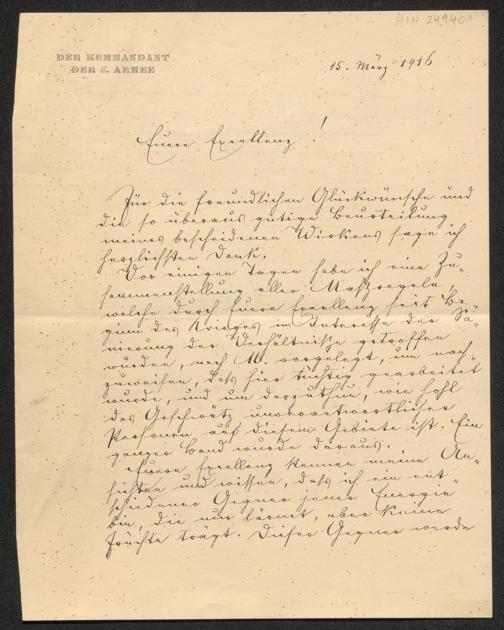 HIN 249401
DER KOMMANDANT
DER 5. ARMEE
15. März 1916
Euere Exzellenz!
Für die freundlichen Glückwünsche und
die so überaus gütige Beurteilung
meines bescheidenen Wirkens sage ich
herzlichsten Dank.
Vor einigen Tagen habe ich eine Zu-
sammenstellung aller Maßregeln,
welche durch Euere Exzellenz seit Be-
ginn des Krieges im Interesse der Sa-
nierung der Verhältniße getroffen
wurden, nach M. vorgelegt, um nach-
zuweisen, daß hier tüchtig gearbeitet
wurde, und um darzuthun, wie hohl
das Geschwätz unverantwortlicher
Personen auf diesem Gebiete ist. Ein
ganzer Band wurde daraus.
Euere Exzellenz kennen meine An-
sichten und wissen, daß ich ein ent-
schiedener Gegner jener Energie
bin, die nur lärmt, aber keine
Früchte trägt. Dieser Gegner werde